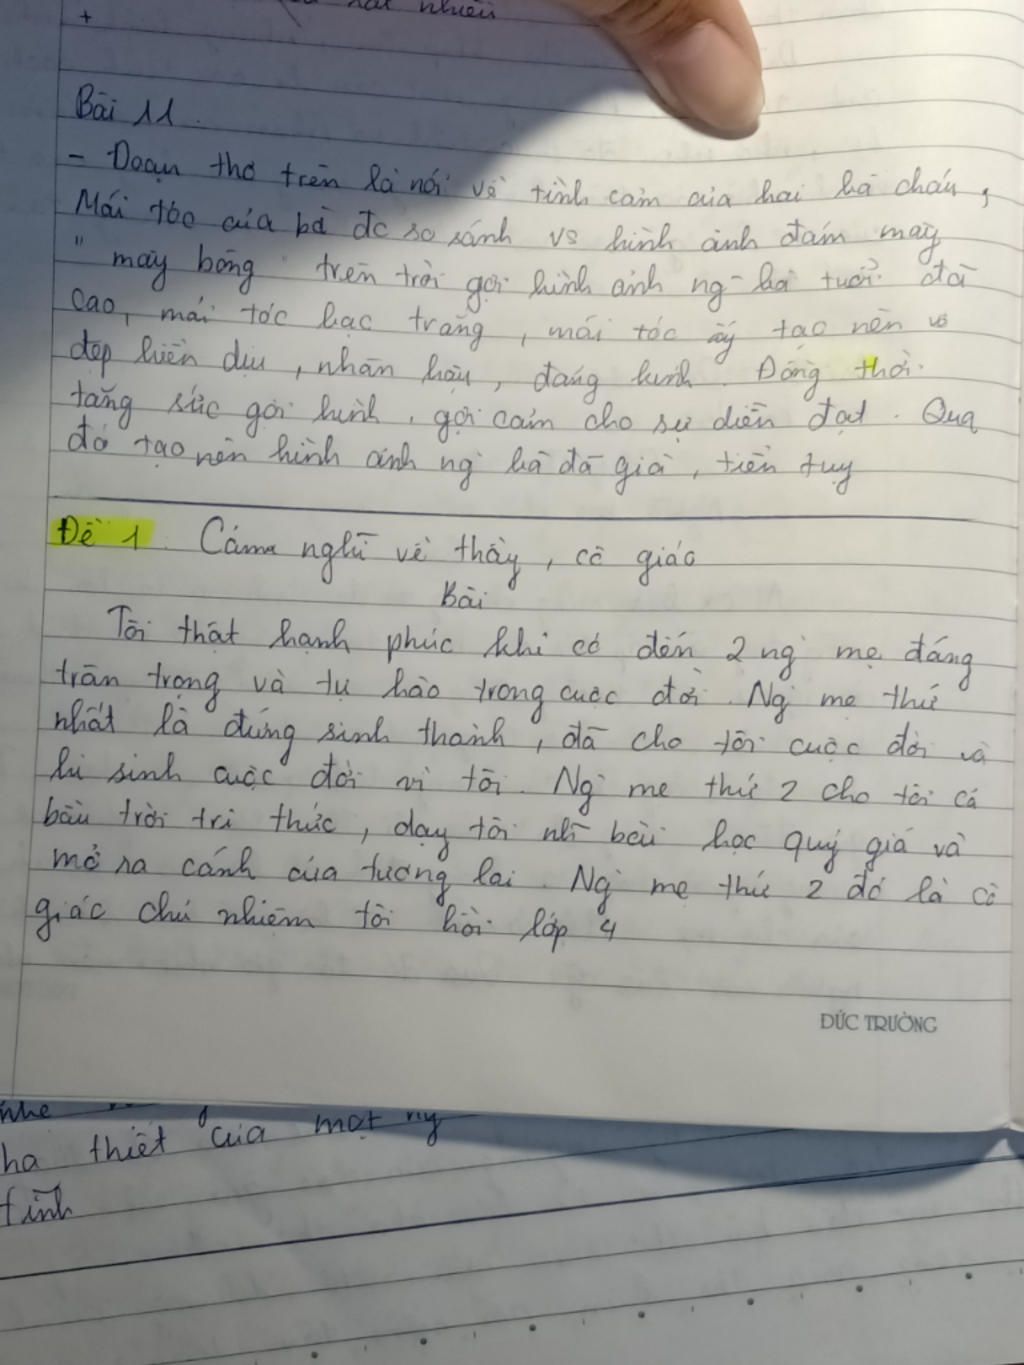 nhiên
+
Bài 11.
- Đoạn thơ trên là nói về tình cảm của hai bà cháu,
Mái tóc của bà đc so sánh vs hình ảnh đám mây
" mây bông " trên trời gợi hình ảnh ng bà tuổi đã
cao, mái tóc bạc trắng, mái tóc ấy tạo nên vẻ
đẹp hiền dịu, nhân hậu, đáng kính. Đồng thời
tăng sức gợi hình, gợi cảm cho sự diễn đạt. Qua
đó tạo nên hình ảnh ng bà đã già, tiền tuỵ
Đề 1. Cảm nghĩ về thầy, cô giáo
Bài
Tôi thật hạnh phúc khi có đến 2 ng mẹ đáng
trân trọng và tự hào trong cuộc đời. Ng mẹ thứ
nhất là đứng sinh thành, đã cho tôi cuộc đời và
hi sinh cuộc đời vì tôi. Ng mẹ thứ 2 cho tôi cả
bầu trời tri thức, dạy tôi nh bài học quý giá và
mở ra cánh cửa tương lai. Ng mẹ thứ 2 đó là cô
giáo chủ nhiệm tôi hồi lớp 4
ĐỨC TRƯỜNG
nhẹ
ha thiết của một ng
tình